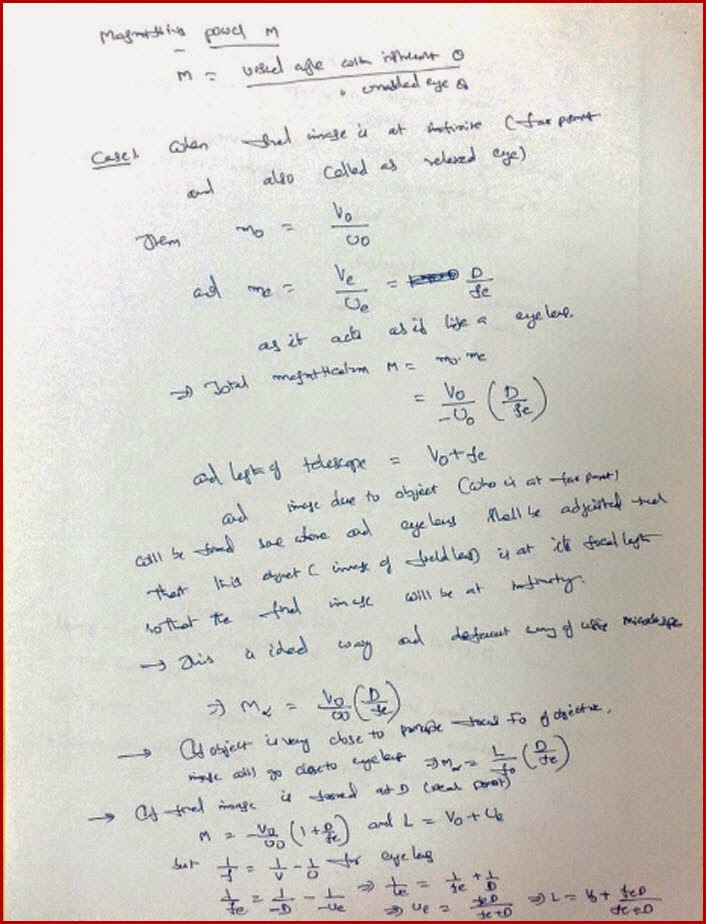 Magnifying power M
M = visual angle with instrument θ / " unaided eye θ
Case1 When final image is at infinite (far point
and also called as relaxed eye)
Then m₀ = V₀/U₀
and me = Ve/Ue = D/fe
as it acts as if like a eye lens.
⇒ Total magnification M = m₀.me
= V₀/-U₀ (D/fe)
and length of telescope = V₀ + fe
and image due to object (who is at far point)
will be formed some where and eye lens shall be adjusted such
that this object (image of field lens) is at its focal length
so that the final image will be at infinity.
→ This is ideal way and way of using microscope
⇒ M∝ = V₀/U₀ (D/fe)
→ If object is very close to principle focus F₀ of objective,
image will go close to eye lens ⇒ M∝ = L/f₀ (D/fe)
→ If final image is formed at D (near point)
M = -V₀/U₀ (1+D/fe) and L = V₀ + Ue
but 1/f = 1/V - 1/U for eye lens
1/fe = 1/-D - 1/-Ue ⇒ 1/Ue = 1/fe + 1/D
⇒ Ue = feD/fe+D ⇒ L = V₀ + feD/fe+D